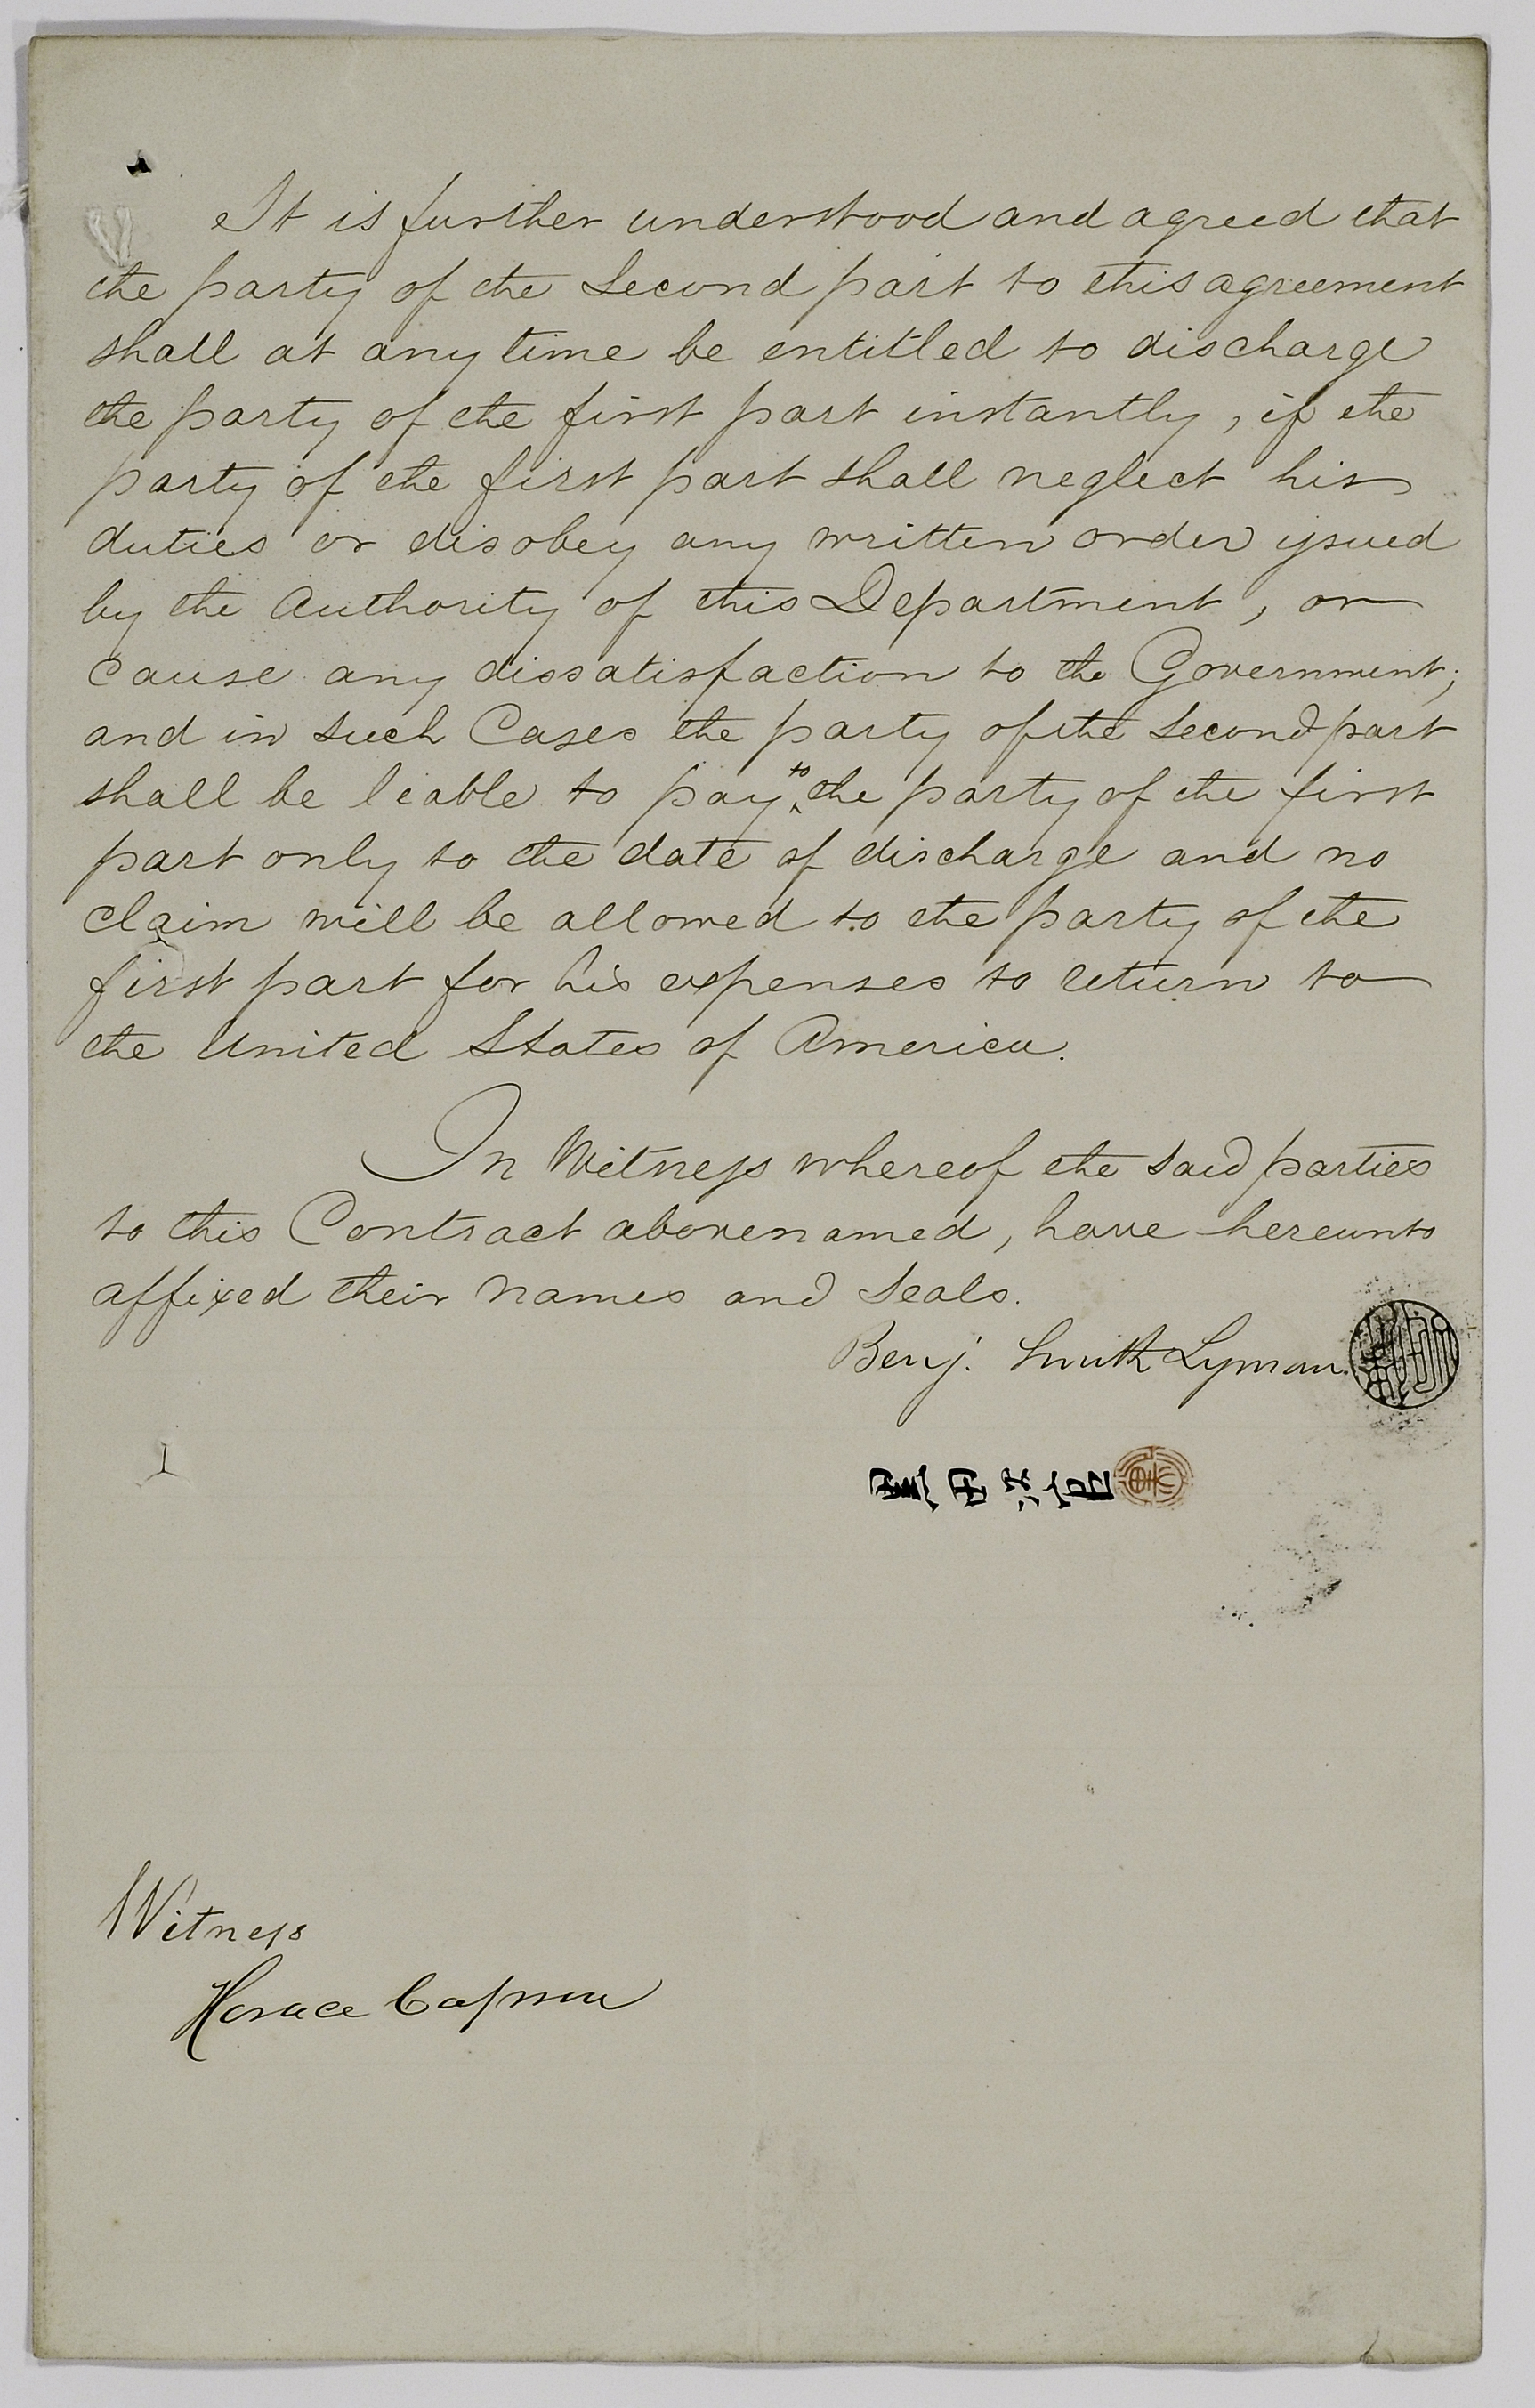 It is further understood and agreed that
the party of the Second part to this agreement
shall at any time be entitled to discharge
the party of the first part instantly, if the
party of the first part shall neglect his
duties or disobey any written order issued
by the Authority of this Department, or
cause any dissatisfaction to the Government;
and in such Cases the party of the Second part
shall be liable to pay to the party of the first
part only to the date of discharge and no
claim will be allowed to the party of the
first part for his expenses to return to
the United States of America.
In Witness whereof the said parties
to this Contract abovenamed, have hereunto
affixed their names and Seals.
Benj. Smith Lyman
黒田
Witness
Horace Capron